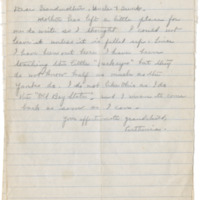 Dear Grandmother, Uncles & Aunts,
Mother has left a little place for
me to write so I thought I could not
leave it unless it is filled up. Since
I have been out here I have been
watching the little "turkeys" but they
do not know half as much as the
Yankee do. I do not like this as I do
the "Old Bay State", and I mean to come
back as soon as I can.
Your affectionate grandchild,